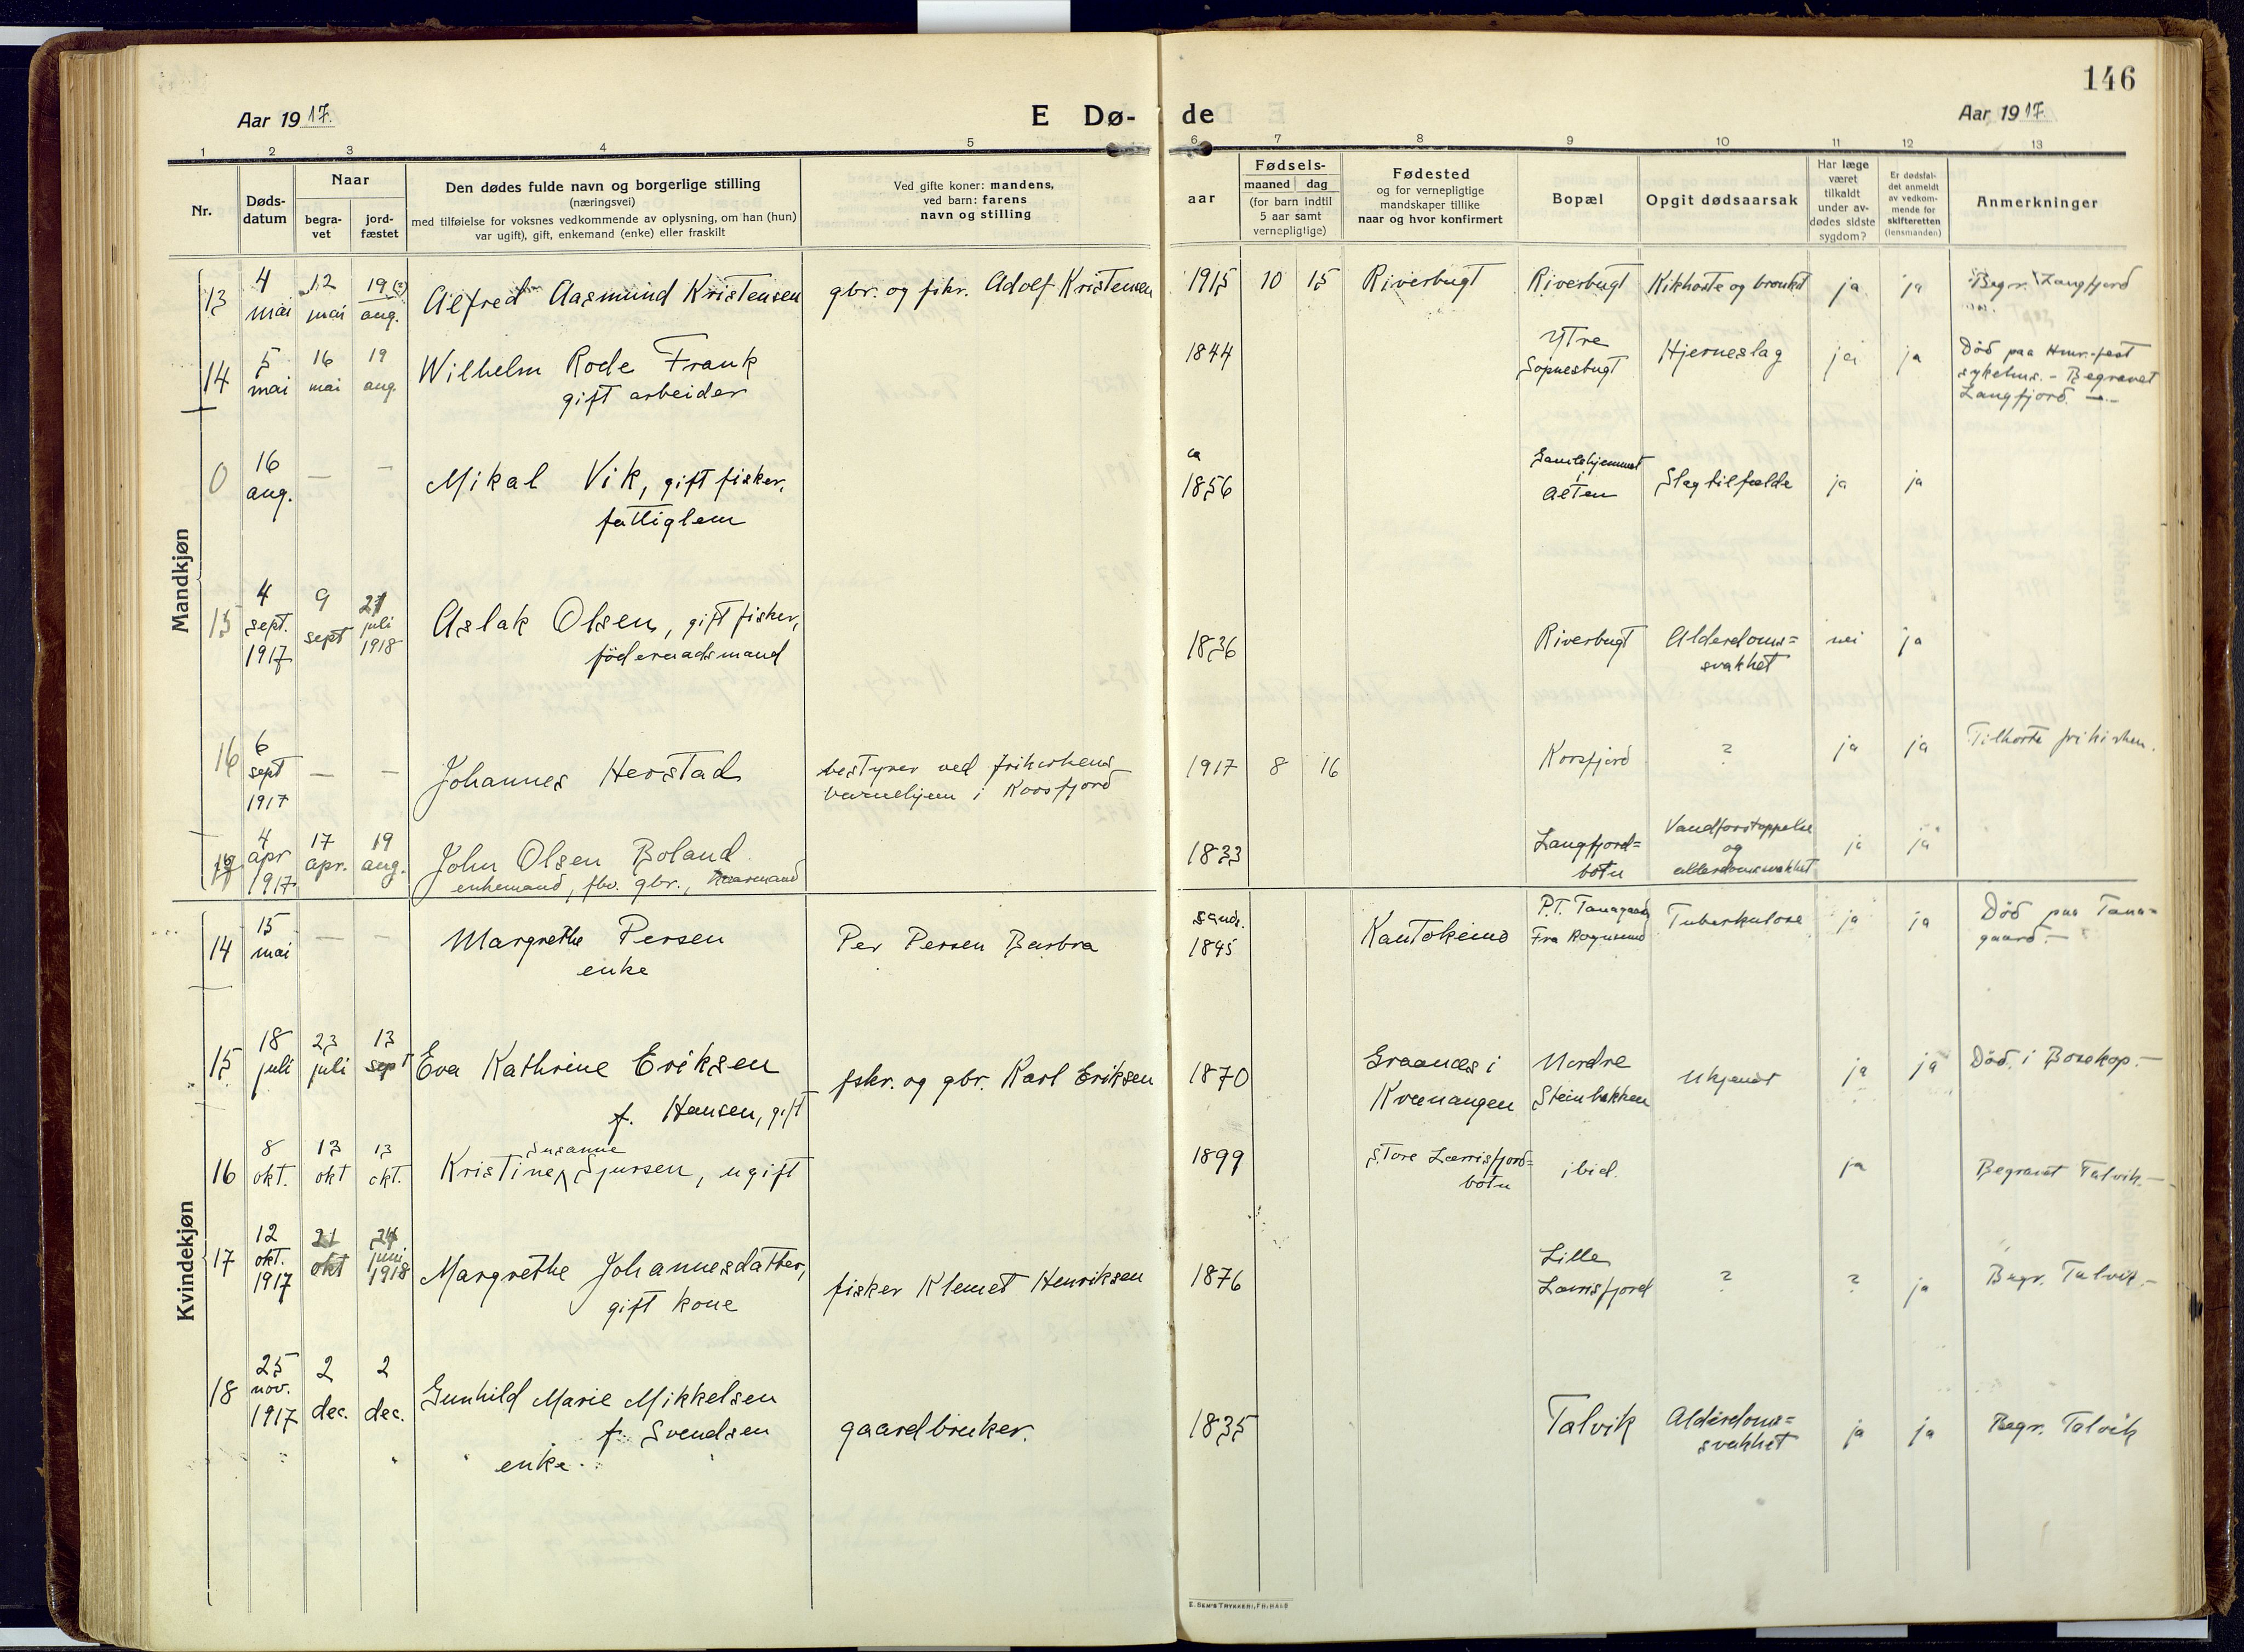 146
Aar 1917.
E Dø-
de
Aar 1917.
1 2 3 4 5 6 7 8 9 10 11 12 13
Nr.
Døds-
datum
Naar
begra-
vet
jord-
fæstet
Den dødes fulde navn og borgerlige stilling
(næringsvei)
med tilføielse for voksnes vedkommende av oplysning, om han (hun)
var ugift), gift, enkemand (enke) eller fraskilt
Ved gifte koner: mandens,
ved barn: farens
navn og stilling
aar
Fødsels-
maaned dag
(for barn indtil
5 aar samt
vernepligtige)
Fødested
og for vernepligtige
mandskaper tillike
naar og hvor konfirmert
Bopæl
Opgit dødsaarsak
Har læge
været
tilkaldt
under av-
dødes sidste
sygdom?
Er dødsfal-
det anmeldt
av vedkom-
mende for
skifteretten
(lensmanden)
Anmerkninger
Mandkjøn
13 4 mai 12 mai 19 aug. Alfred Aasmund Kristensen gbr. og fskr. Adolf Kristensen 1915 10 15 Riverbugt Riverbugt Kikhoste og bronkit ja ja Begr. Langfjord
14 5 mai 16 mai 19 aug. Wilhelm Rode Frank
gift arbeider
1844 Ytre
Sopnesbugt Hjerneslag ja ja Død paa Hmr.-fest
sykehus. - Begravet
Langfjord. -
0 16 aug. — — Mikal Vik, gift fisker,
fattiglem
ca
1856 Gamlehjemmet
i
Alten Slagtilfælde ja ja
15 4 sept. 1917 9 sept 21 juli 1918 Aslak Olsen, gift fisker,
föderaadsmand
1836 Riverbugt Alderdoms=
svakhet nei ja
16 6 sept 1917 — — Johannes Herstad bestyrer ved frikirkens
barnehjem i Korsfjord
1917 8 16 Korsfjord ? ja ja Tilhørte frikirken.
4 apr 1917 17 apr. 19 aug. John Olsen Boland
enkemand, fhv. gbr.,
1833 Langfjord=
botn Vandforstoppelse
og
alderdomssvakhet ja ja
Kvindekjøn
14 15 mai — — Margrethe Persen
enke
Per Persen Barbra
sands.
1845 Kautokeino P.T. Tanagaard
Fra Rognsund Tuberkulose ja ja Død paa Tana=
gaard. -
15 18 juli 23 juli 13 sept Eva Kathrine Eriksen
f. Hansen, gift
fskr. og gbr. Karl Eriksen 1870 Graanæs i
Kvænangen Nordre
Steinbakken Ukjendt ja ja Død i Bosekop. -
16 8 okt. 13 okt 13 okt. Kristine Susanne Sjursen, ugift 1899 Store Lærrisfjord=
botn ibid. ja Begravet Talvik. -
17 12 okt. 1917 21 okt 24 juni 1918 Margrethe Johannesdatter,
gift kone
fisker Klemet Henriksen 1876 Lille
Lærrisfjord ? ? ja Begr. Talvik. -
18 25 nov. 1917 2 dec. 2 dec. Gunhild Marie Mikkelsen
f. Svendsen
enke
gaardbruker. 1835 Talvik Alderdoms=
svakhet ja ja Begr. Talvik